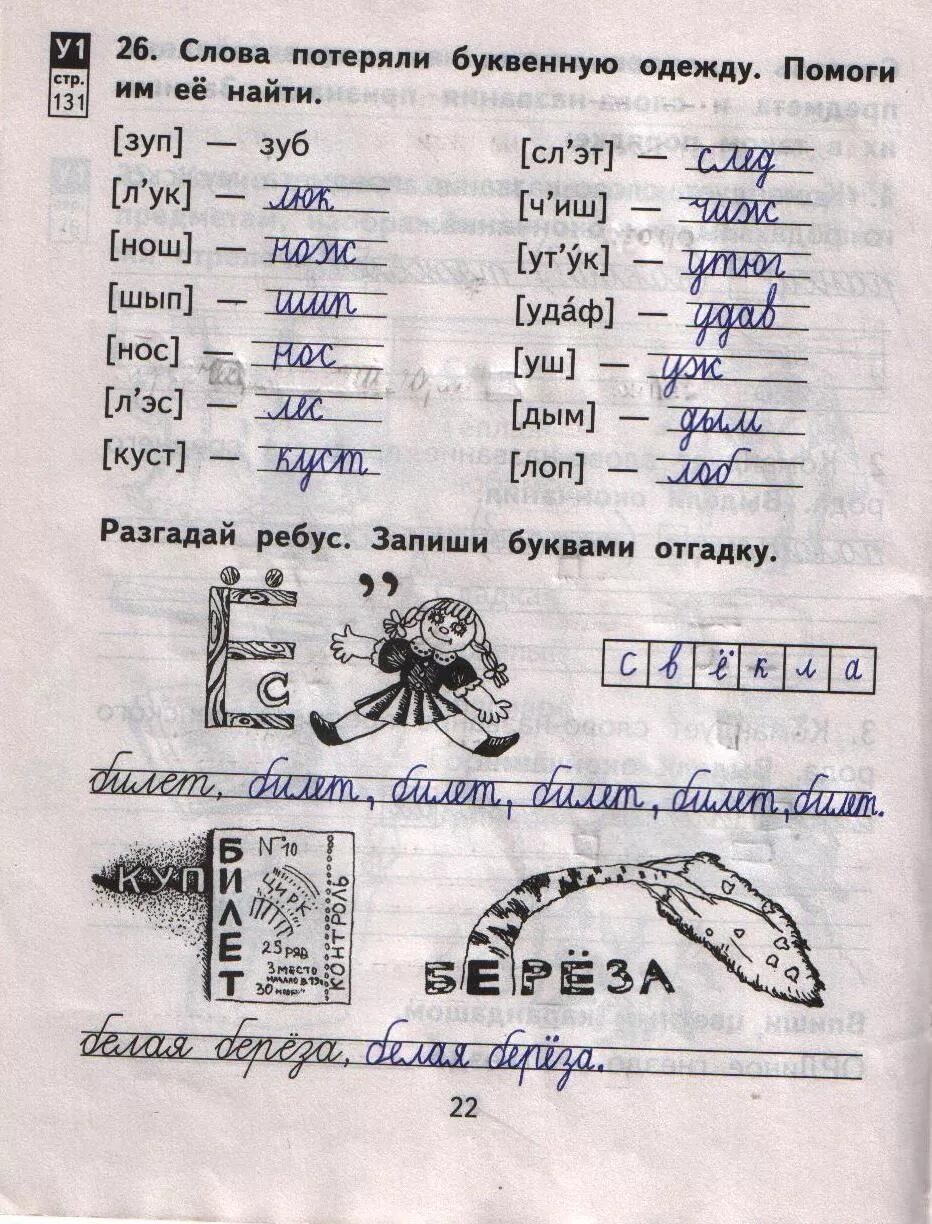 У1
стр.
131
26. Слова потеряли буквенную одежду. Помоги
им её найти.
[зуп] — зуб
[л'ук] — люк
[нош] — нож
[шып] — шип
[нос] — нос
[л'эс] — лес
[куст] — куст
[сл'эт] — след
[ч'иш] — чиж
[ут'у́к] — утюг
[уда́ф] — удав
[уш] — уж
[дым] — дым
[лоп] — лоб
Разгадай ребус. Запиши буквами отгадку.
Ё
с
,,
свёкла
билет, билет, билет, билет, билет, билет.
КУП
БИЛЕТ
№10
ЦИРК
25 РЯД
3 МЕСТО
КОНТРОЛЬ
БЕРЁЗА
белая берёза, белая берёза.
22